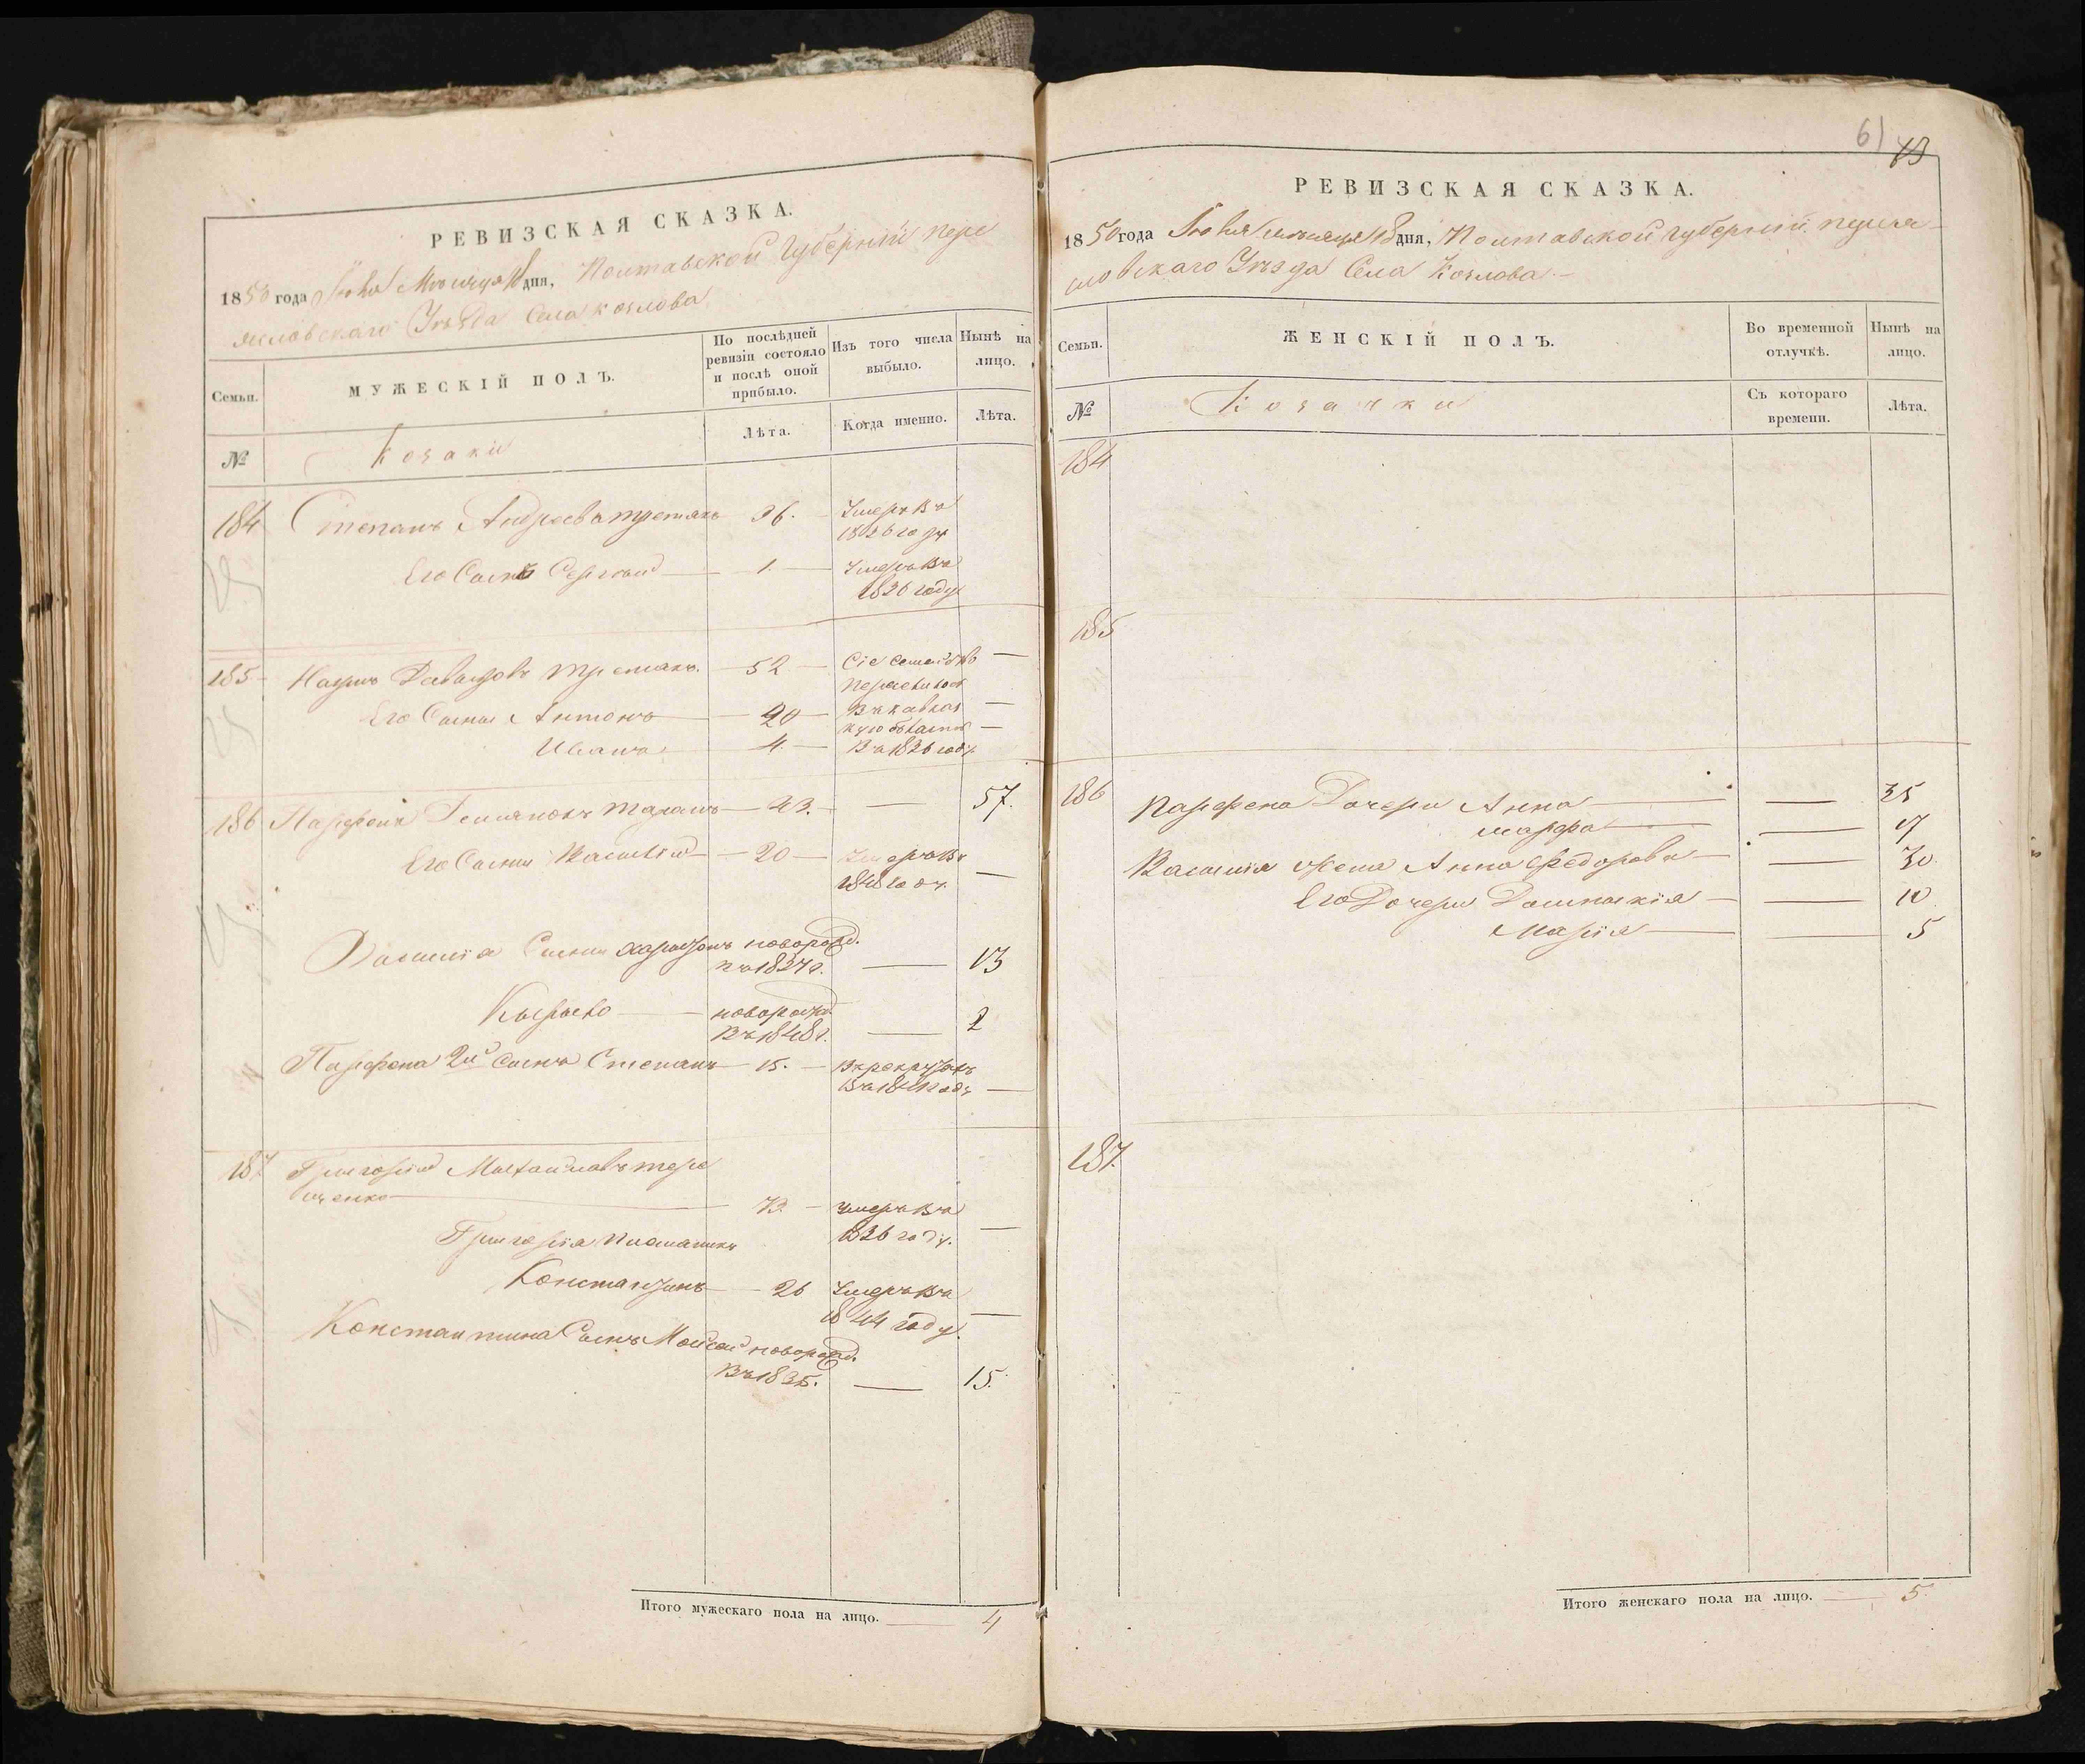 РЕВИЗСКАЯ СКАЗКА.
1850 года Июня Месяца дня, Полтавской Губерній Пере
яславскаго Уезда Села Козлова
Семьи.
МУЖЕСКІЙ ПОЛЪ.
По послѣдней ревизіи состояло и послѣ оной прибыло.
Изъ того числа выбыло.
Нынѣ на лицо.
№
Козаки
Лѣта.
Когда именно.
Лѣта.
184 Степанъ Андреевъ третякъ 36. Умеръ въ
1836 году
Его Сынъ Сергій 1. Умеръ въ
1836 году
185 Наумъ Давыдовъ третякъ. 52 Сіе семейство
переселилось
Его Сыны Антонъ 20 въ кавказ
кую область
Иванъ 4. Въ 1836 году
186 Парфенъ Демьяновъ 43. 57.
Его Сынъ Василій 20 Умеръ въ
1848 году.
Василія Сыны Харитонъ новорожд.
въ 1837 г. 13
Кирило новорожд.
Въ 1848 г. 2
Парфена 2й Сынъ Степанъ 15. Въ рекрутахъ
187 Григорій Михайловъ тере
щенко Умеръ въ
1836 году.
Григорія племяникъ
Константинъ 26 Умеръ въ
1844 году.
Константина Сынъ Мойсей новорожд.
Въ 1835. 15.
Итого мужескаго пола на лицо. 4
61
РЕВИЗСКАЯ СКАЗКА.
1850 года Июня месяца дня, Полтавской Губерній Перея
словскаго Уезда Села Козлова
Семьи.
ЖЕНСКІЙ ПОЛЪ.
Во временной отлучкѣ.
Нынѣ на лицо.
№
Козачки
Съ котораго времени.
Лѣта.
184
185
186 Парфена Дочери Анна 35
Марфа
Василія жена Анна Федорова 30.
Его Дочери Домникія 10
Марія 5
187.
Итого женскаго пола на лицо. 5.